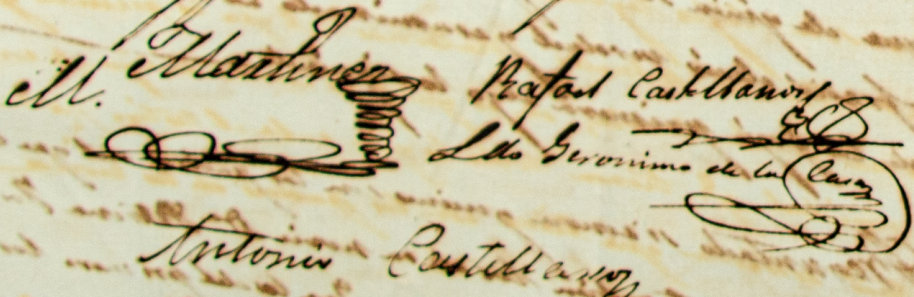 M. Martinez
Rafael Castellanos
Ldo Geronimo de la Casa
Antonio Castellanos